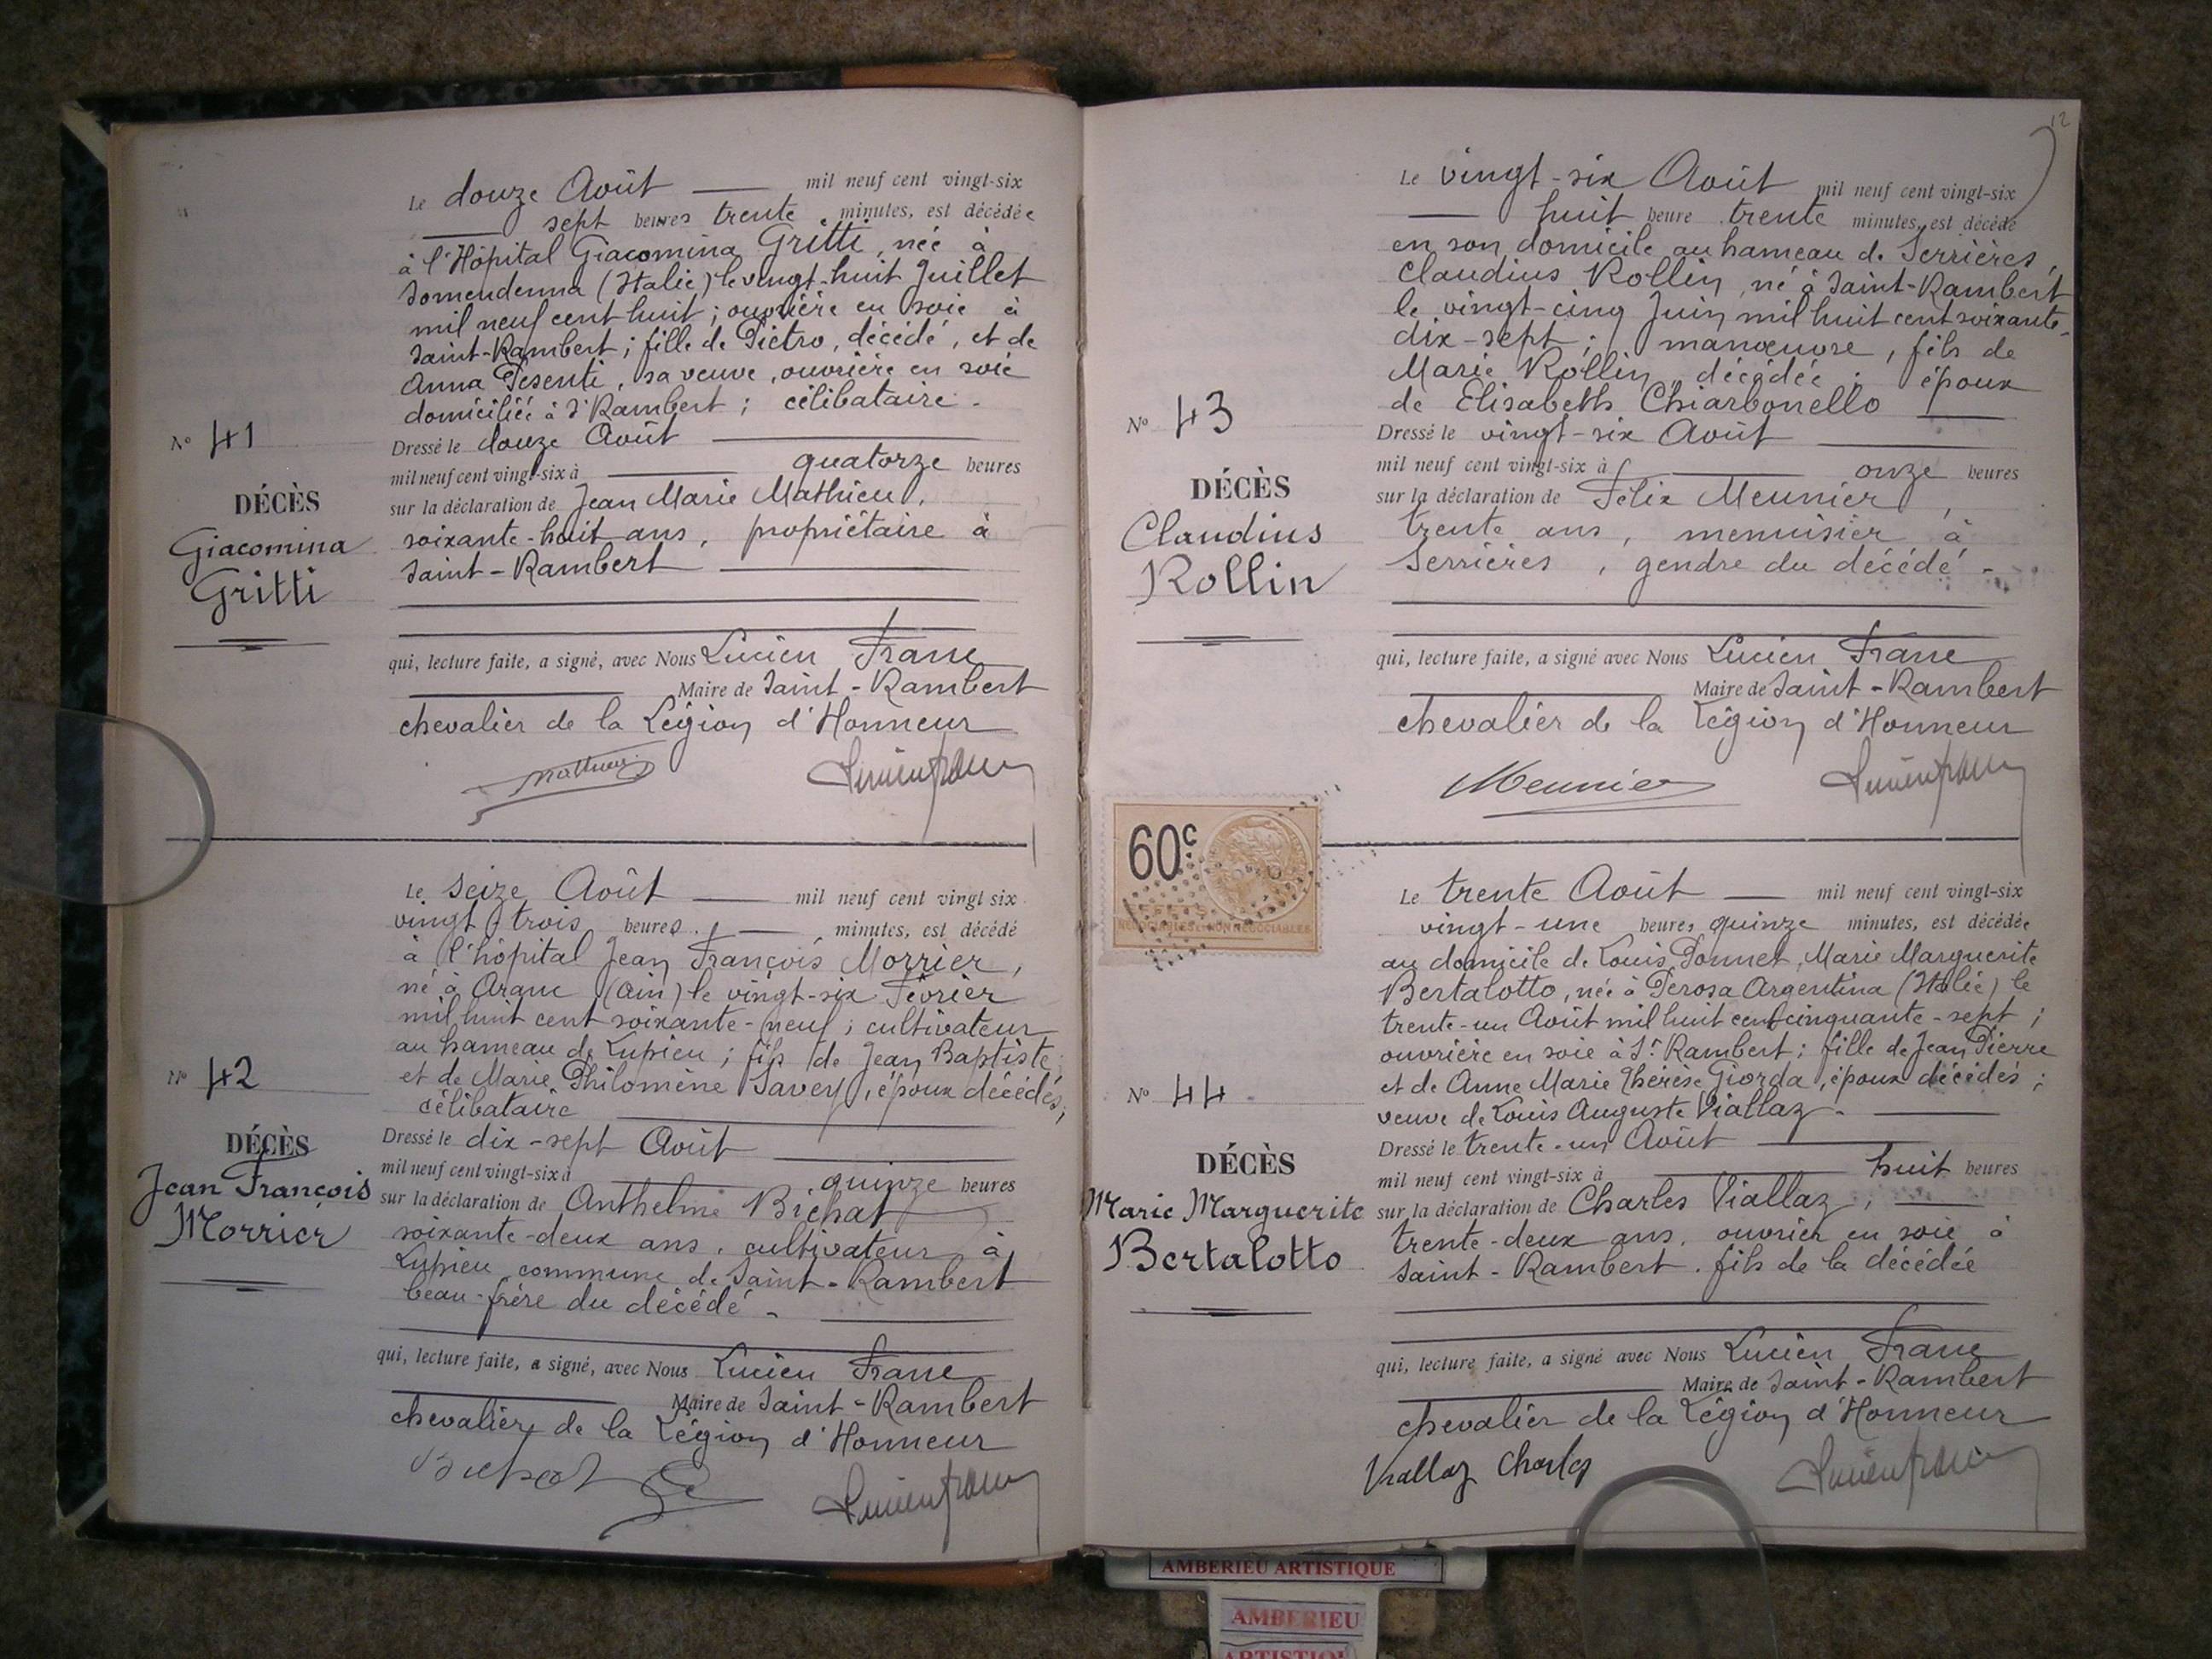 Le douze Août mil neuf cent vingt-six
sept heures trente minutes, est décédée
à l'Hôpital Giacomina Gritti, née à
Somendenna (Italie) le vingt-huit Juillet
mil neuf cent huit ; ouvrière en soie à
Saint-Rambert ; fille de Pietro, décédé, et de
Anna Pesenti, sa veuve, ouvrière en soie
domiciliée à St Rambert ; célibataire.
Nº 41
DÉCÈS
Giacomina
Gritti
Dressé le douze Août
mil neuf cent vingt-six à quatorze heures
sur la déclaration de Jean Marie Mathieu,
soixante-huit ans, propriétaire à
Saint-Rambert
qui, lecture faite, a signé, avec Nous Lucien Franc
Maire de Saint-Rambert
chevalier de la Légion d'Honneur
Mathieu Lucien franc
Le seize Août mil neuf cent vingt six
vingt trois heures, minutes, est décédé
à l'hôpital Jean François Morrier,
né à Aranc (Ain) le vingt-six Février
mil huit cent soixante-neuf ; cultivateur
au hameau de Lupieu ; fils de Jean Baptiste
et de Marie Philomène Savey, époux décédés,
célibataire
Nº 42
DÉCÈS
Jean François
Morrier
Dressé le dix-sept Août
mil neuf cent vingt-six à quinze heures
sur la déclaration de Anthelme Bichat
soixante-deux ans, cultivateur à
Lupieu commune de Saint-Rambert
beau-frère du décédé.
qui, lecture faite, a signé, avec Nous Lucien Franc
Maire de Saint-Rambert
chevalier de la Légion d'Honneur
Bichat Lucien franc
12
Le vingt-six Août mil neuf cent vingt-six
huit heure trente minutes, est décédé
en son domicile au hameau de Serrières,
Claudius Rollin, né à Saint-Rambert
le vingt-cinq Juin mil huit cent soixante-
dix-sept ; manœuvre, fils de
Marie Rollin, décédée ; époux
de Elisabeth Chiarbonello
Nº 43
DÉCÈS
Claudius
Rollin
Dressé le vingt-six Août
mil neuf cent vingt-six à onze heures
sur la déclaration de Félix Meunier,
trente ans, menuisier à
Serrières, gendre du décédé.
qui, lecture faite, a signé avec Nous Lucien Franc
Maire de Saint-Rambert
chevalier de la Légion d'Honneur
Meunier Lucien franc
60c
Le trente Août mil neuf cent vingt-six
vingt-une heures quinze minutes, est décédée
au domicile de Louis Donnet, Marie Marguerite
Bertalotto, née à Perosa Argentina (Italie) le
trente-un Août mil huit cent cinquante-sept ;
ouvrière en soie à St Rambert ; fille de Jean Pierre
et de Anne Marie Thérèse Giorda, époux décédés ;
veuve de Louis Auguste Viallaz.
Nº 44
DÉCÈS
Marie Marguerite
Bertalotto
Dressé le trente-un Août
mil neuf cent vingt-six à huit heures
sur la déclaration de Charles Viallaz,
trente-deux ans, ouvrier en soie à
Saint-Rambert, fils de la décédée
qui, lecture faite, a signé avec Nous Lucien Franc
Maire de Saint-Rambert
chevalier de la Légion d'Honneur
Viallaz Charles Lucien franc
AMBERIEU ARTISTIQUE
AMBERIEU
ARTISTIQUE